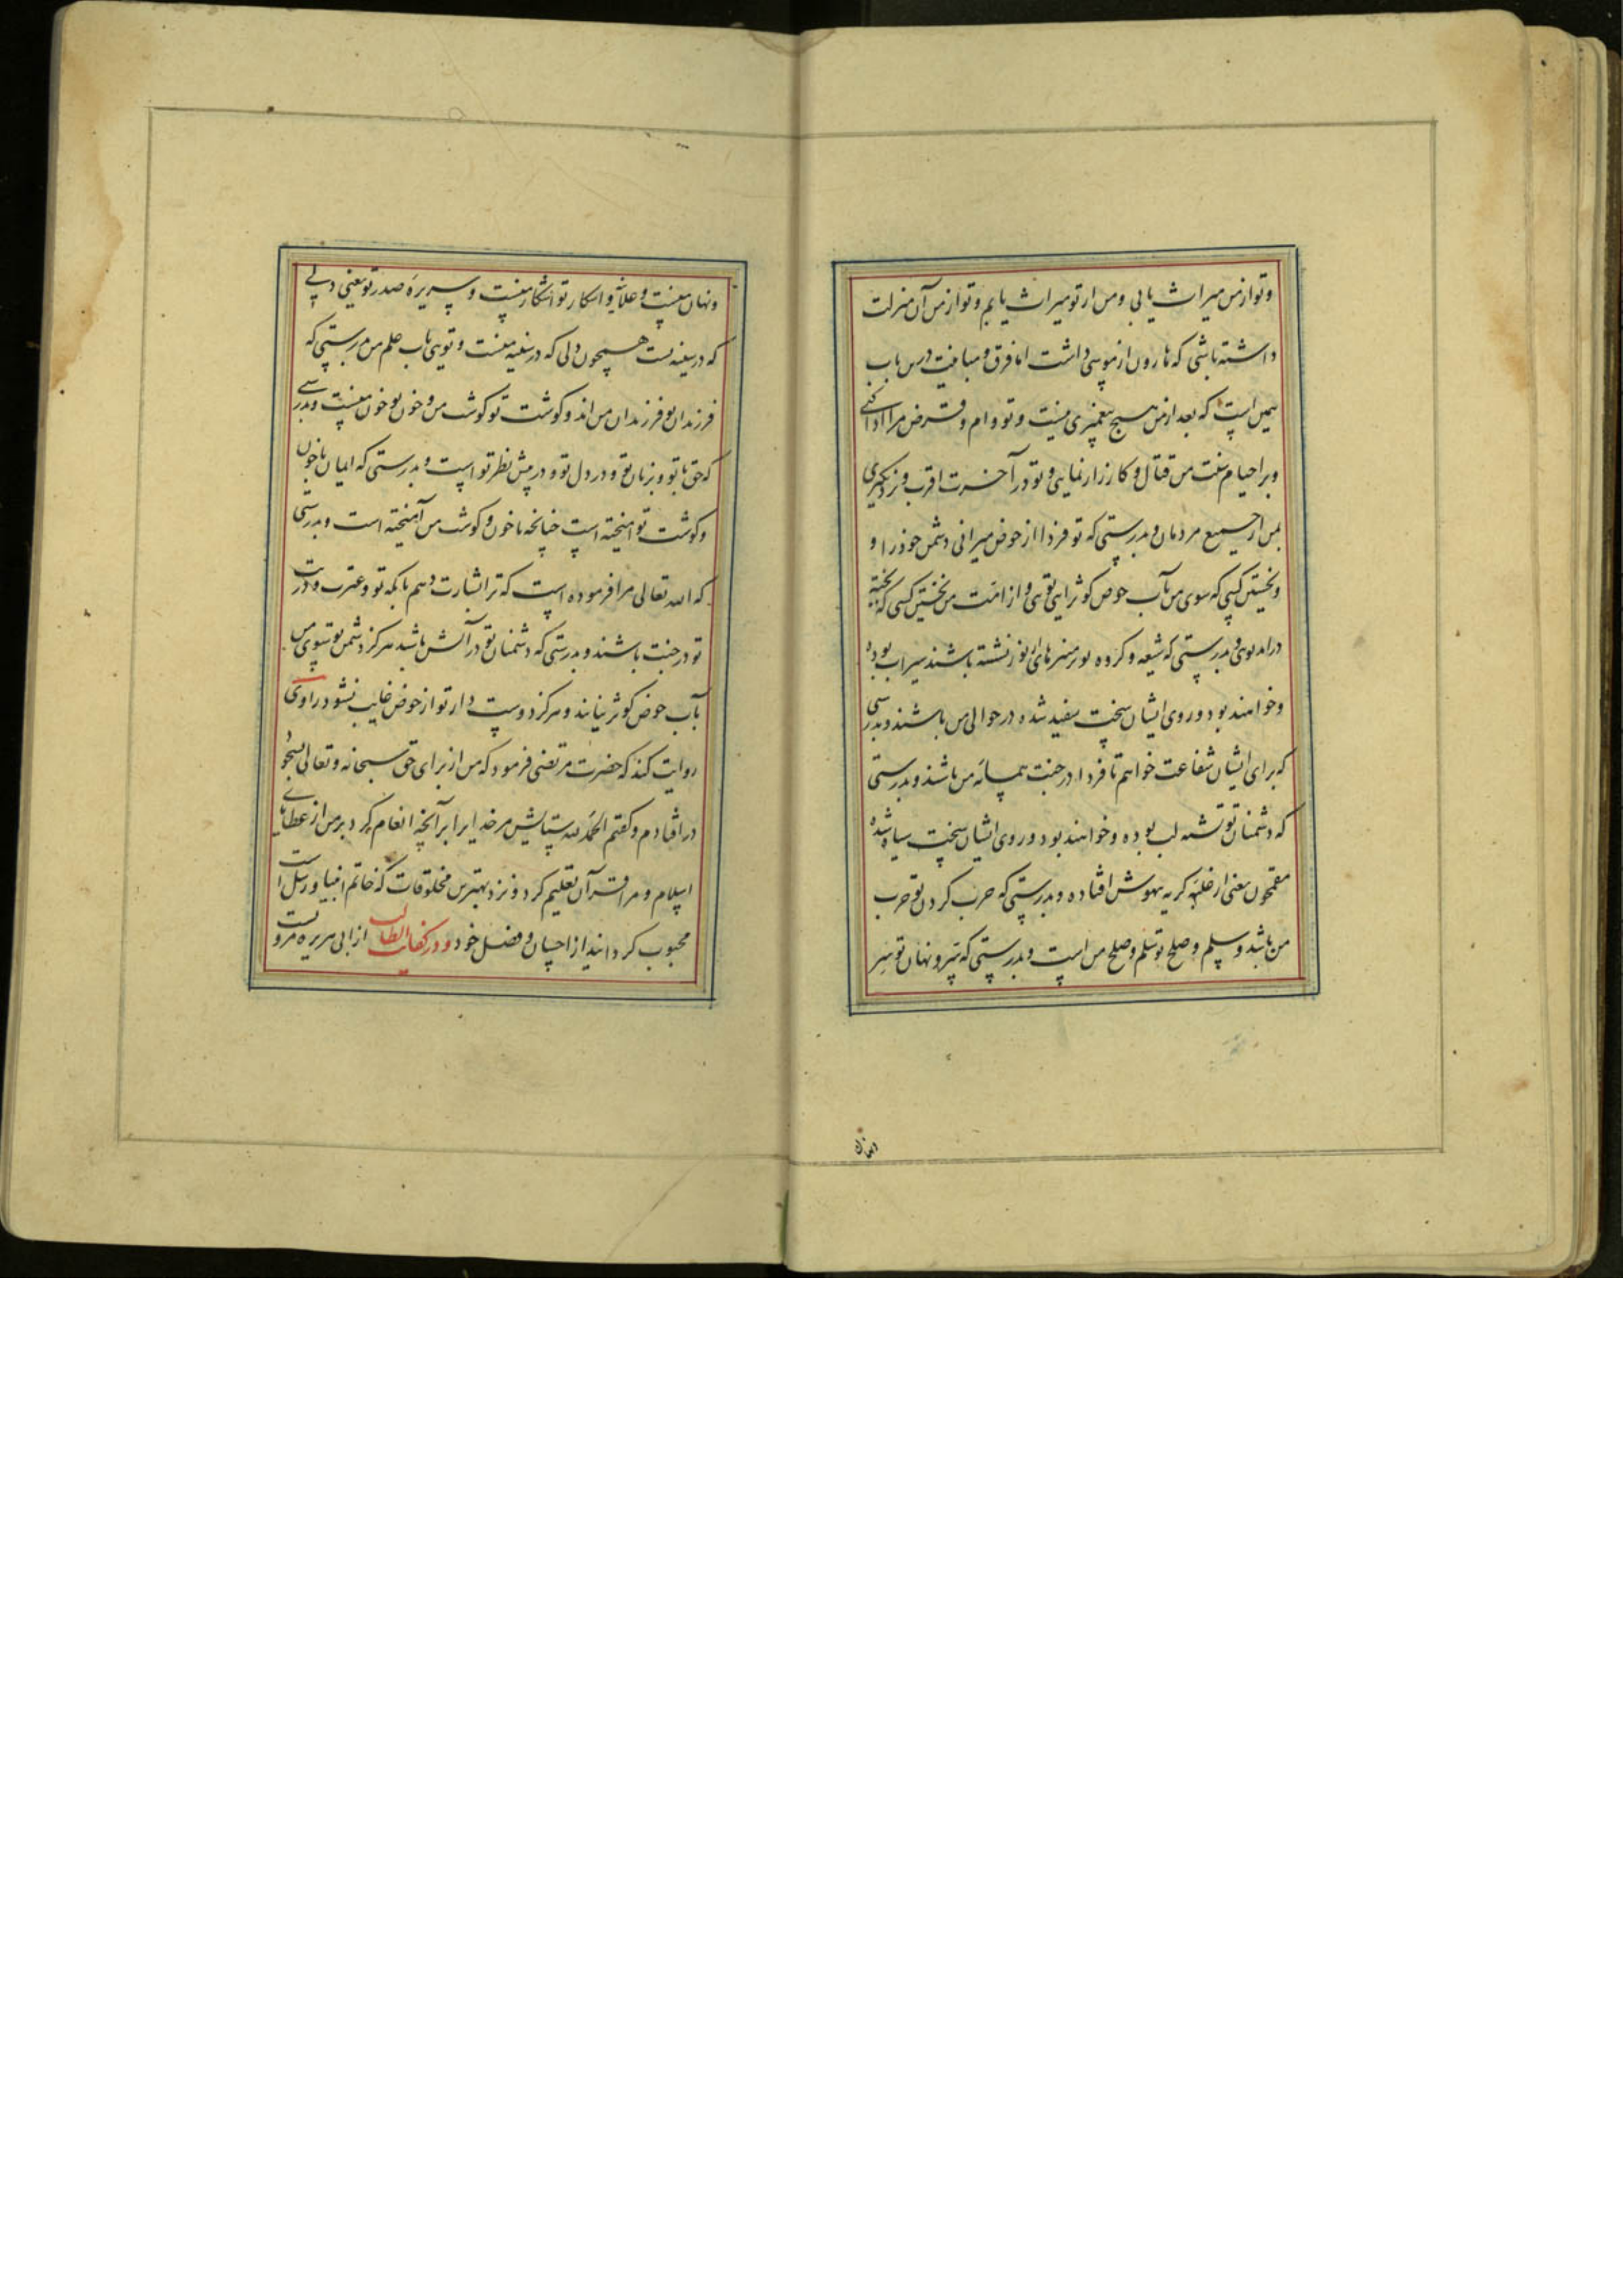 و تو از من میراث یابی و من از تو میراث یابم و تو از من آن منزلت
داشته باشی که هارون از موسی داشت اما فرق و مباینت درین باب
همین است که بعد از من هیچ پیغمبری نیست و تو وام و قرض مرا ادا کنی
و بر احیام سنت من قتال و کارزار نمایی و تو در آخرت اقرب و نزدیکتری
بمن از جمیع مردمان و بدرستی که تو فردا از حوض میرانی دشمن خود را و
و نخستین کسی که سوی من بآب حوض کوثر آید تویی و از امت من نخستین کسی که بجنت
دراید تویی و بدرستی که شیعه و گروه تو بر منبرهای نور نشسته باشند سیراب بوده
و خواهند بود و روی ایشان سخت سفید شده در حوالی من باشند و بدرستی
که برای ایشان شفاعت خواهم تا فردا در جنت همسایه من باشند و بدرستی
که دشمنان تو تشنه لب بوده و خواهند بود و روی ایشان سخت سیاه شده
مقمحون یعنی از غلبه گریه بیهوش افتاده و بدرستی که حرب کردن تو حرب
من باشد و سلم و صلح تو سلم و صلح من است و بدرستی که سر و نهان تو سر
و نهان منست و علانیه و اشکار تو اشکار منست و سریره صدر تو یعنی دلی
که در سینه تست همچون دلی که در سینه منست و تویی باب علم من بدرستی که
فرزندان تو فرزندان من اند و گوشت تو گوشت من و خون تو خون منست و بدرستی
که حق با تو و بر زبان تو و در دل تو و در پیش نظر تو است و بدرستی که ایمان با خون
و گوشت تو آمیخته است چنانچه با خون و گوشت من آمیخته است و بدرستی
که الله تعالی مرا فرموده است که ترا بشارت دهم بآنکه تو و عترت و ذریت
تو در جنت باشند و بدرستی که دشمنان تو در آتش باشند هرگز دشمن تو بسوی من
بآب حوض کوثر نیاند و هرگز دوست دار تو از حوض غایب نشود راوی
روایت کند که حضرت مرتضی فرمود که من از برای حق سبحانه و تعالی بسجود
در افتادم و گفتم الحمد لله ستایش مر خدایرا بر آنچه انعام کرد بر من از عطاهای
اسلام و مرا قرآن تعلیم کرد و نزد بهترین مخلوقات که خاتم انبیا و رسل است
محبوب گردانید از احسان و فضل خود و در کفایت الطالب از ابی هریره مرویست